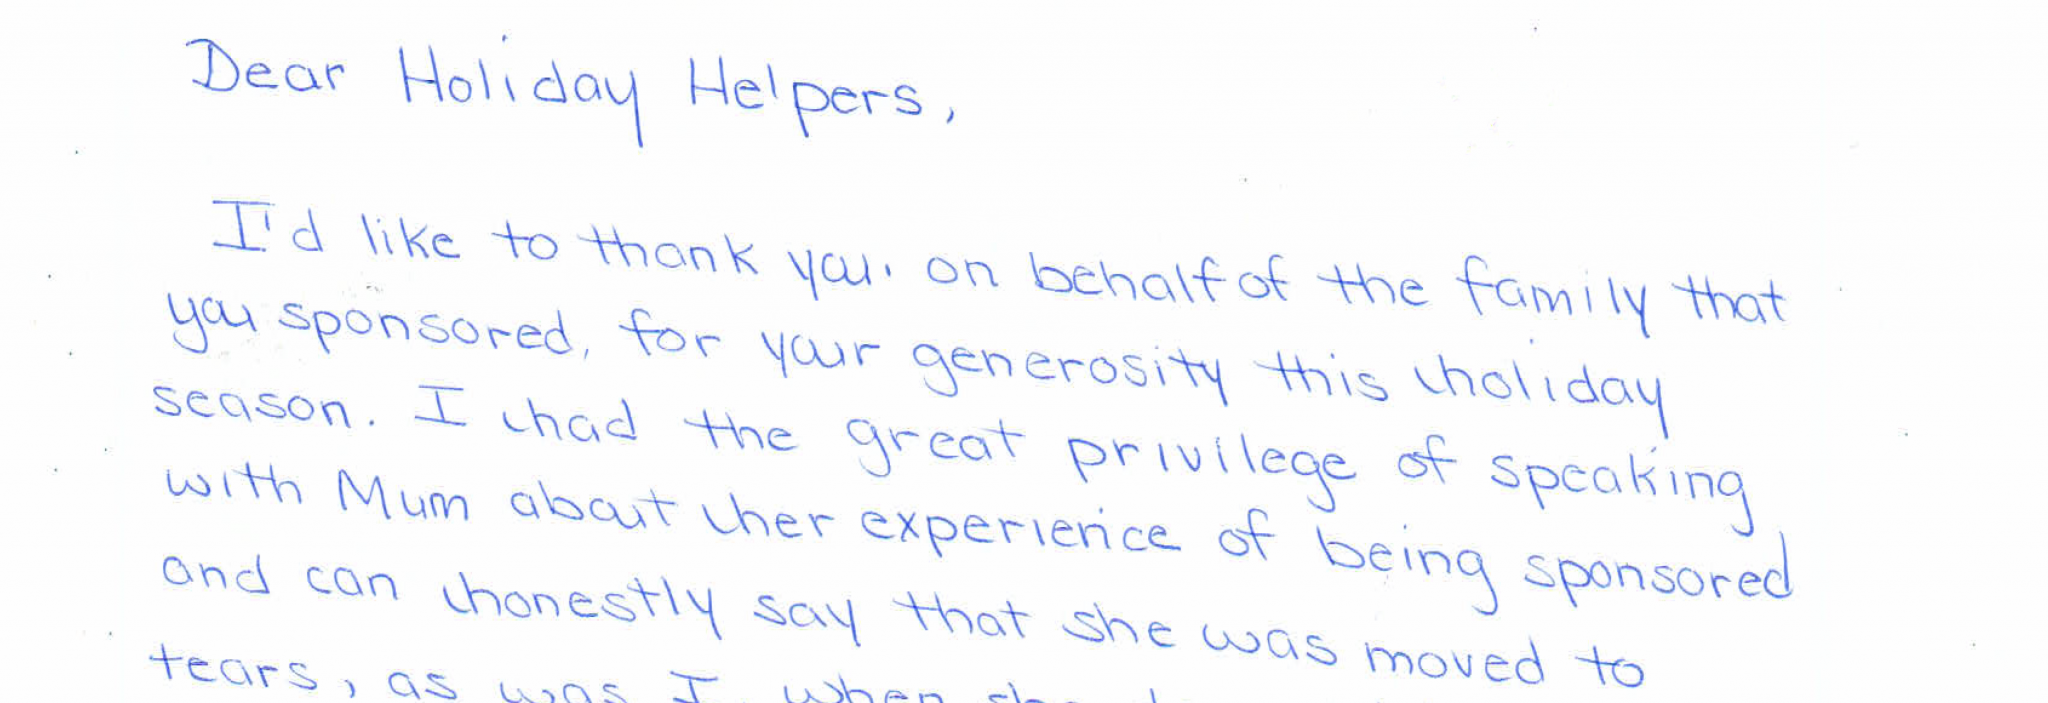 Dear Holiday Helpers,
I'd like to thank you, on behalf of the family that
you sponsored, for your generosity this holiday
season. I had the great privilege of speaking
with Mum about her experience of being sponsored
and can honestly say that she was moved to
tears, as was I, when she